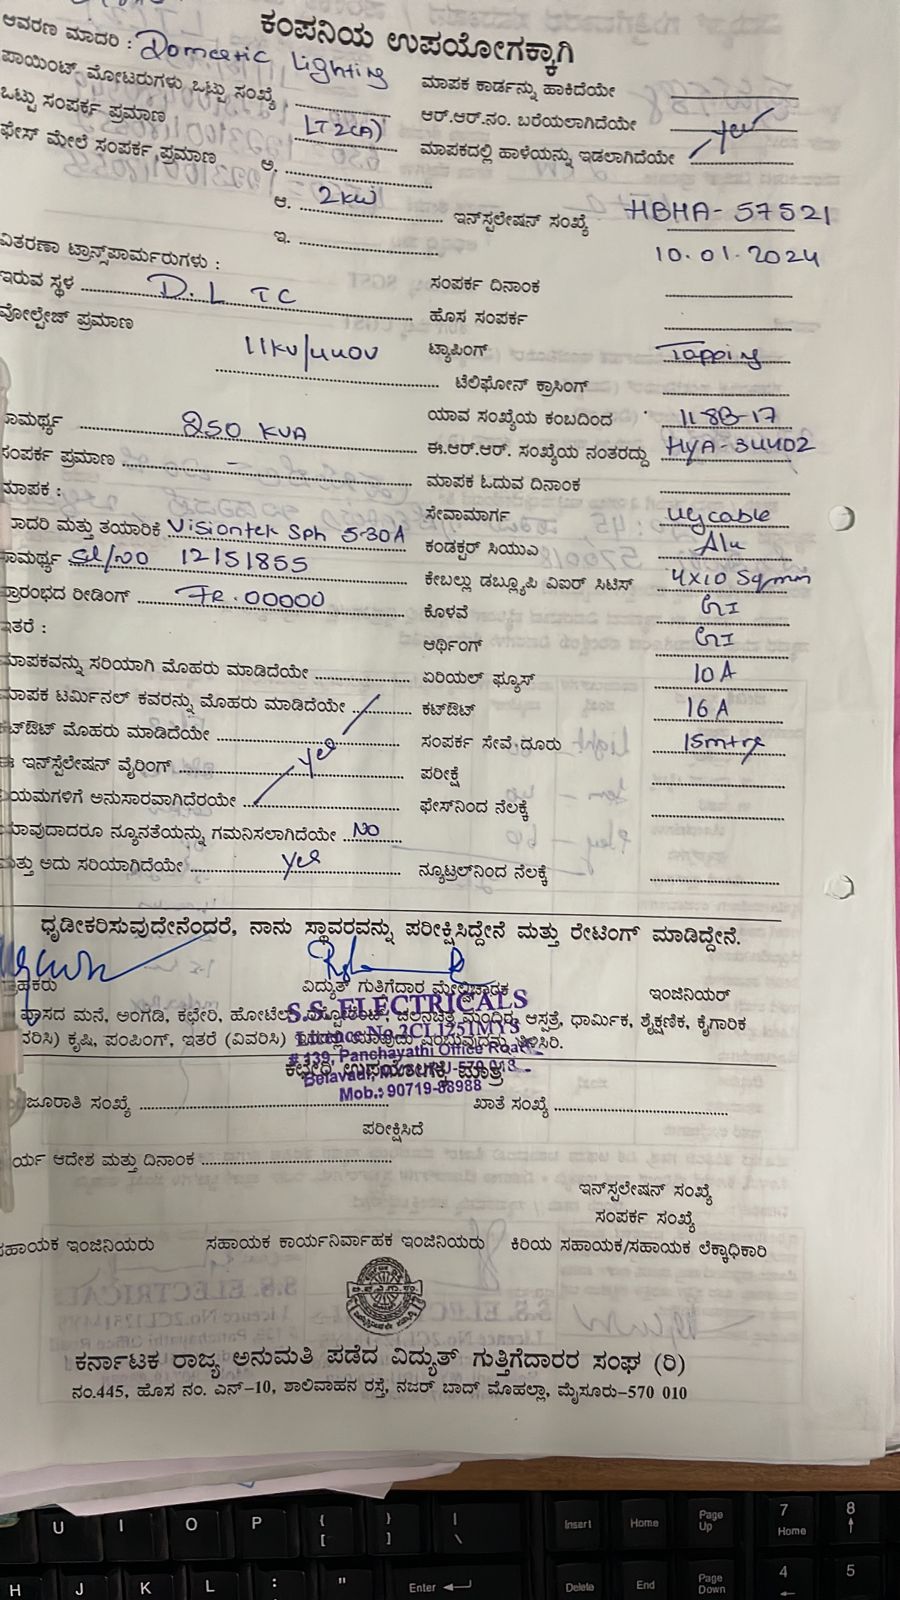 ಕಂಪನಿಯ ಉಪಯೋಗಕ್ಕಾಗಿ
ಆವರಣ ಮಾದರಿ : Domestic Lighting
ಪಾಯಿಂಟ್ ಮೋಟರುಗಳು ಒಟ್ಟು ಸಂಖ್ಯೆ
ಮಾಪಕ ಕಾರ್ಡನ್ನು ಹಾಕಿದೆಯೇ
ಒಟ್ಟು ಸಂಪರ್ಕ ಪ್ರಮಾಣ LT2(A)
ಆರ್.ಆರ್.ನಂ. ಬರೆಯಲಾಗಿದೆಯೇ yes
ಫೇಸ್ ಮೇಲೆ ಸಂಪರ್ಕ ಪ್ರಮಾಣ ಅ.
ಮಾಪಕದಲ್ಲಿ ಹಾಳೆಯನ್ನು ಇಡಲಾಗಿದೆಯೇ
ಆ. 2kW
ಇನ್‌ಸ್ಟಲೇಷನ್ ಸಂಖ್ಯೆ HBHA-57521
ಇ.
10.01.2024
ವಿತರಣಾ ಟ್ರಾನ್ಸ್‌ಫಾರ್ಮರುಗಳು :
ಸಂಪರ್ಕ ದಿನಾಂಕ
ಇರುವ ಸ್ಥಳ D.L TC
ಹೊಸ ಸಂಪರ್ಕ
ವೋಲ್ಟೇಜ್ ಪ್ರಮಾಣ 11KV/440V
ಟ್ಯಾಪಿಂಗ್ Tapping
ಟೆಲಿಫೋನ್ ಕ್ರಾಸಿಂಗ್
ಸಾಮರ್ಥ್ಯ 250 KVA
ಯಾವ ಸಂಖ್ಯೆಯ ಕಂಬದಿಂದ 118B-17
ಸಂಪರ್ಕ ಪ್ರಮಾಣ
ಈ.ಆರ್.ಆರ್. ಸಂಖ್ಯೆಯ ನಂತರದ್ದು HYA-34402
ಮಾಪಕ :
ಮಾಪಕ ಓದುವ ದಿನಾಂಕ
ಮಾದರಿ ಮತ್ತು ತಯಾರಿಕೆ Visiontek Sph 5-30A
ಸೇವಾಮಾರ್ಗ ugcable
ಸಾಮರ್ಥ್ಯ Sl/NO 12151855
ಕಂಡಕ್ಟರ್ ಸಿಯುವಿ Alu
ಪ್ರಾರಂಭದ ರೀಡಿಂಗ್ Fr.00000
ಕೇಬಲ್ಲು ಡಬ್ಲ್ಯೂಪಿ ವಿಐಆರ್ ಸಿಟಿಸ್ 4X10 Sqmm
ಇತರೆ :
ಕೊಳವೆ GI
ಆರ್ಥಿಂಗ್ GI
ಮಾಪಕವನ್ನು ಸರಿಯಾಗಿ ಮೊಹರು ಮಾಡಿದೆಯೇ
ಏರಿಯಲ್ ಫ್ಯೂಸ್ 10A
ಮಾಪಕ ಟರ್ಮಿನಲ್ ಕವರನ್ನು ಮೊಹರು ಮಾಡಿದೆಯೇ
ಕಟ್‌ಔಟ್ 16A
ಕಟ್‌ಔಟ್ ಮೊಹರು ಮಾಡಿದೆಯೇ
ಸಂಪರ್ಕ ಸೇವೆ ದೂರು 15mtrs
ಈ ಇನ್‌ಸ್ಟೆಲೇಷನ್ ವೈರಿಂಗ್ yes
ಪರೀಕ್ಷೆ
ನಿಯಮಗಳಿಗೆ ಅನುಸಾರವಾಗಿದೆರಯೇ
ಫೇಸ್‌ನಿಂದ ನೆಲಕ್ಕೆ
ಯಾವುದಾದರೂ ನ್ಯೂನತೆಯನ್ನು ಗಮನಿಸಲಾಗಿದೆಯೇ NO
ಮತ್ತು ಅದು ಸರಿಯಾಗಿದೆಯೇ yes
ನ್ಯೂಟ್ರಲ್‌ನಿಂದ ನೆಲಕ್ಕೆ
ಧೃಡೀಕರಿಸುವುದೇನೆಂದರೆ, ನಾನು ಸ್ಥಾವರವನ್ನು ಪರೀಕ್ಷಿಸಿದ್ದೇನೆ ಮತ್ತು ರೇಟಿಂಗ್ ಮಾಡಿದ್ದೇನೆ.
ಗ್ರಾಹಕರು
ವಿದ್ಯುತ್ ಗುತ್ತಿಗೆದಾರ ಮೇಲ್ವಿಚಾರಕ
ಇಂಜಿನಿಯರ್
S.S. ELECTRICALS
Licence No.2CL1251MYS
# 139, Panchayathi Office Road
Belavadi,
Mob.: 90719-88988
ವಾಸದ ಮನೆ, ಅಂಗಡಿ, ಕಛೇರಿ, ಹೋಟೆಲ್, ಚಲನಚಿತ್ರ ಮಂದಿರ, ಆಸ್ಪತ್ರೆ, ಧಾರ್ಮಿಕ, ಶೈಕ್ಷಣಿಕ, ಕೈಗಾರಿಕ
ಕೃಷಿ, ಪಂಪಿಂಗ್, ಇತರೆ (ವಿವರಿಸಿ) ಇದರಲ್ಲಿ ಯಾವುದು ಎಂಬುವುದನ್ನು ತಿಳಿಸಿರಿ.
ಕಛೇರಿ ಉಪಯೋಗಕ್ಕೆ ಮಾತ್ರ
ಮಂಜೂರಾತಿ ಸಂಖ್ಯೆ
ಖಾತೆ ಸಂಖ್ಯೆ
ಪರೀಕ್ಷಿಸಿದೆ
ಕಾರ್ಯ ಆದೇಶ ಮತ್ತು ದಿನಾಂಕ
ಇನ್‌ಸ್ಟಲೇಷನ್ ಸಂಖ್ಯೆ
ಸಂಪರ್ಕ ಸಂಖ್ಯೆ
ಸಹಾಯಕ ಇಂಜಿನಿಯರು
ಸಹಾಯಕ ಕಾರ್ಯನಿರ್ವಾಹಕ ಇಂಜಿನಿಯರು
ಕಿರಿಯ ಸಹಾಯಕ/ಸಹಾಯಕ ಲೆಕ್ಕಾಧಿಕಾರಿ
ಕರ್ನಾಟಕ ರಾಜ್ಯ ಅನುಮತಿ ಪಡೆದ ವಿದ್ಯುತ್ ಗುತ್ತಿಗೆದಾರರ ಸಂಘ (ರಿ)
ನಂ.445, ಹೊಸ ನಂ. ಎನ್-10, ಶಾಲಿವಾಹನ ರಸ್ತೆ, ನಜರ್ ಬಾದ್ ಮೊಹಲ್ಲಾ, ಮೈಸೂರು-570 010
U I O P { [ } ] | \ Insert Home Page Up 7 Home 8
H J K L : " Enter Delete End Page Down 4 5